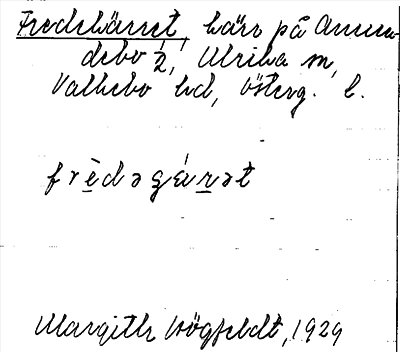 Fredekärret, kärr på Ammun-
debo ½, Ulrika sn,
Valkebo hd, Österg. l.
frèdəgárət
Margith Högfeldt, 1929